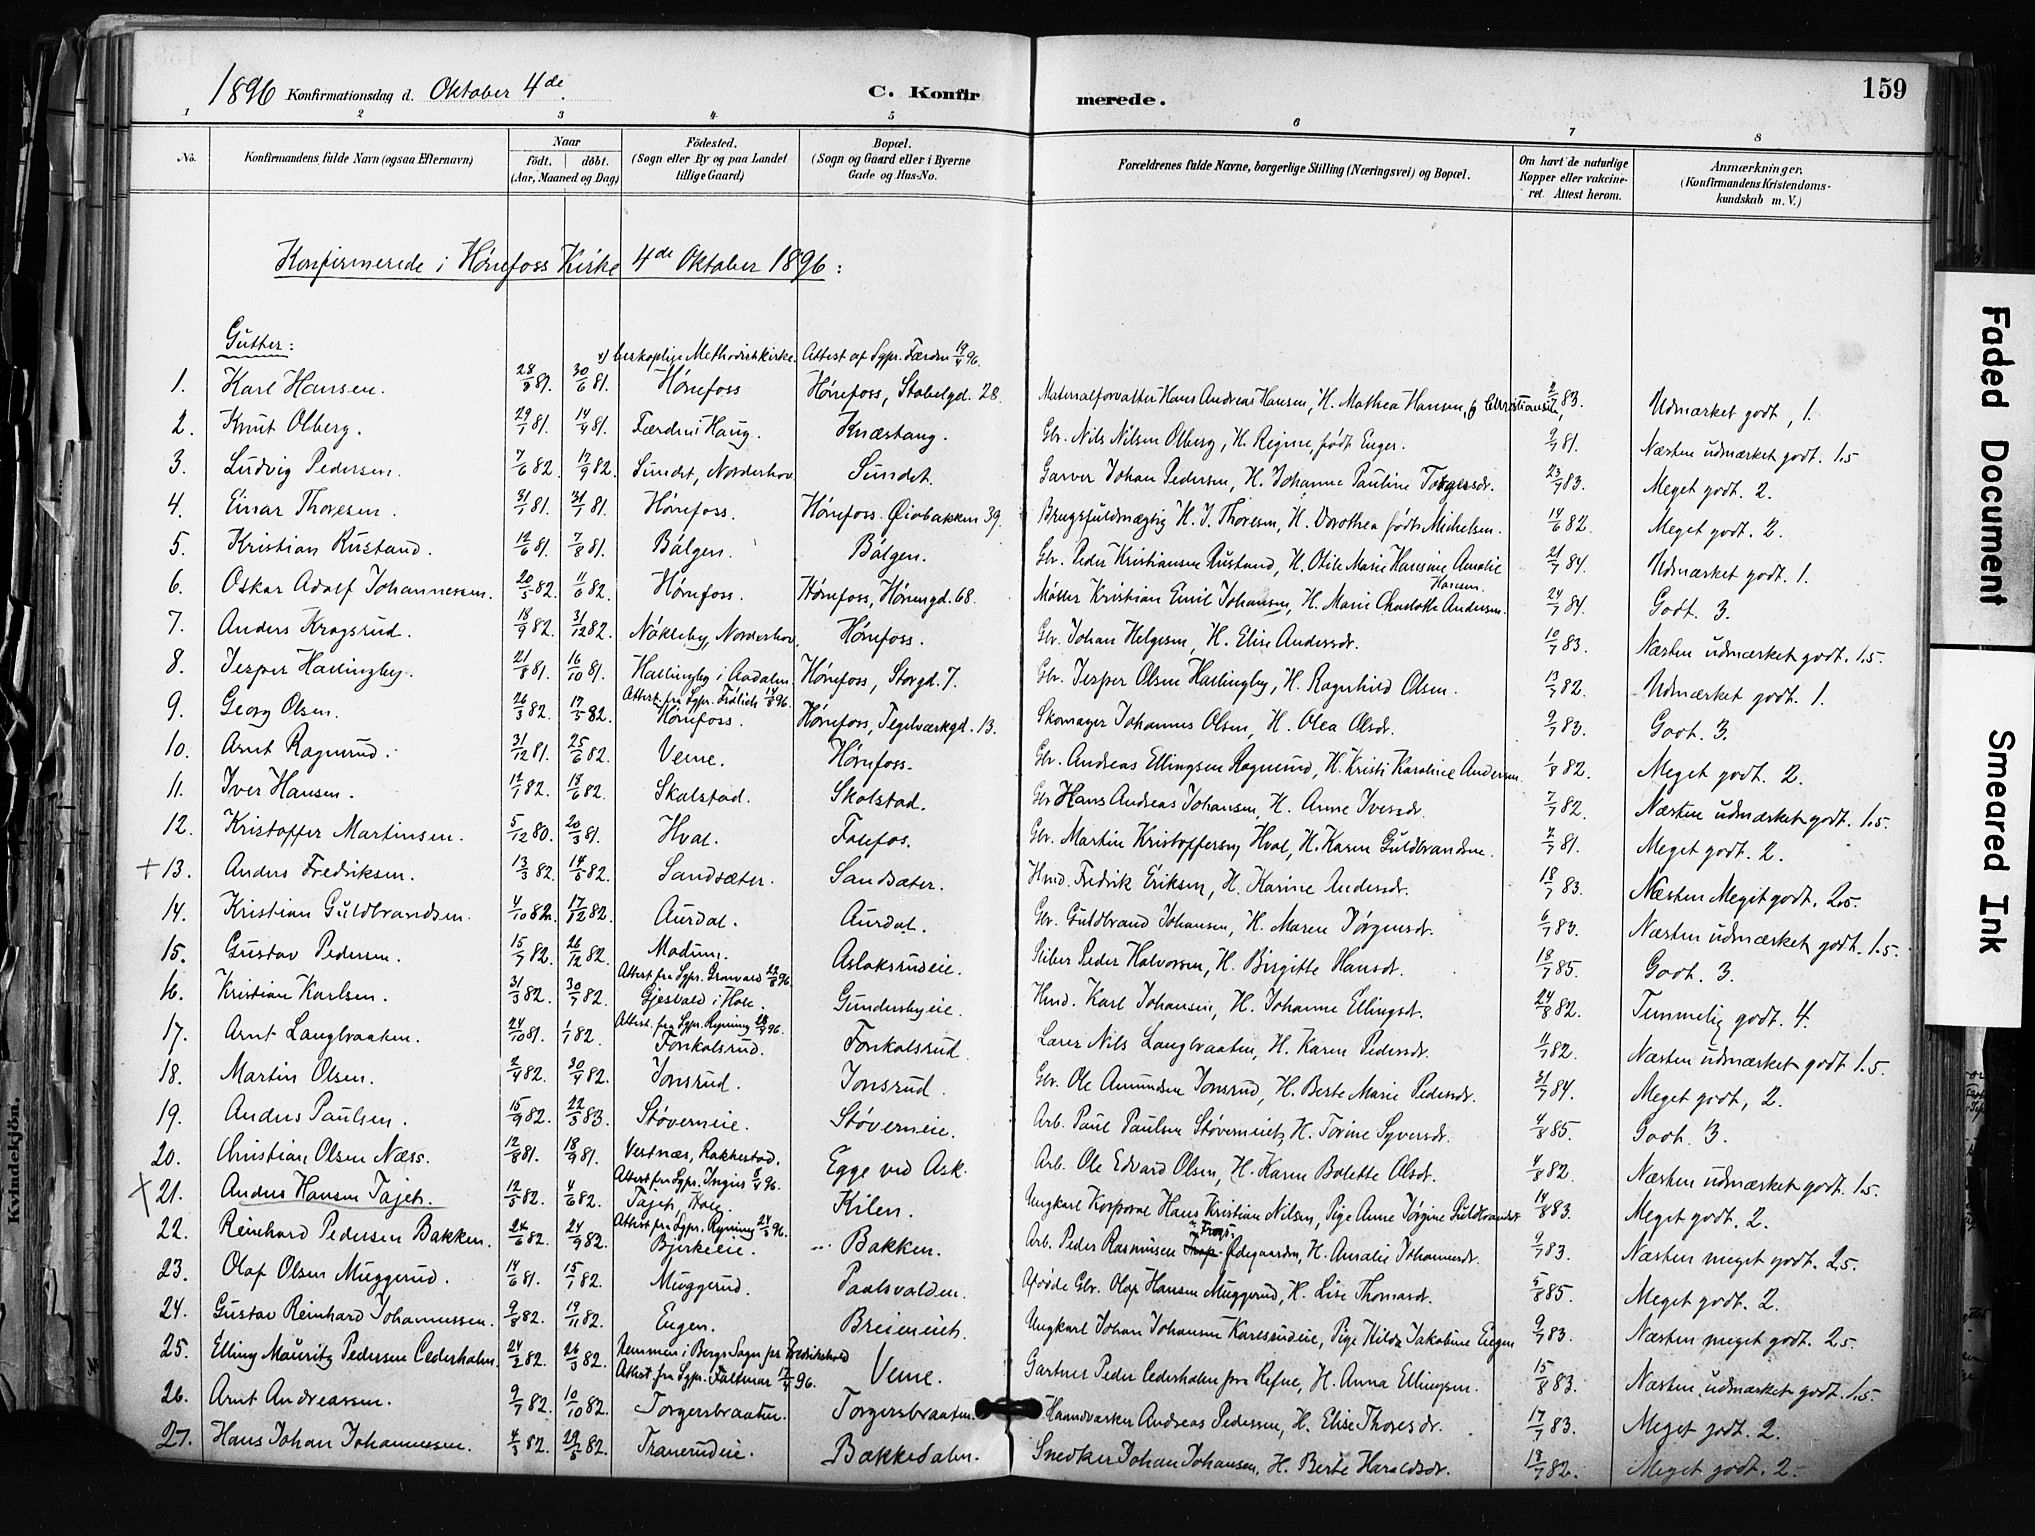 1896 Konfirmationsdag d. Oktober 4de C. Konfirmerede. 159
1 2 3 4 5 6 7 8
No. Konfirmandens fulde Navn (ogsaa Efternavn) Naar født. døbt. (Aar, Maaned og Dag) Födested. (Sogn eller By og paa Landet tillige Gaard) Bopæl. (Sogn og Gaard eller i Byerne Gade og Hus-No. Forældrenes fulde Navne, borgerlige Stilling (Næringsvei) og Bopæl. Om havt de naturlige Kopper eller vakcineret. Attest herom. Anmærkninger. (Konfirmandens Kristendomskundskab m. V.)
Konfirmerede i Hønefoss Kirke 4de Oktober 1896:
Gutter:
biskoplige Methodistkirke. Attest af Sgpr. Færden 19/9 96.
1. Karl Hansen. 81. 30/6 81. Hønefoss Hønefoss, Stabelgd. 28. Materialforvalter Hans Andreas Hansen, H. Mathea Hansen, 83. Udmærket godt, 1.
2. Knut Olberg. 29/1 81. 14/4 81. Færden i Haug. Knæstang. Gbr. Nils Nilsen Olberg, H. Regine, født Enger. 9/7 81. Næsten udmærket godt. 1.5
3. Ludvig Pedersen. 7/6 82. 17/9 82. Sundet, Norderhov Sundet. Garver Johan Pedersen, H. Johanne Pauline Torgersdr. 23/7 83. Meget godt. 2.
4. Einar Thoresen. 31/1 81. 31/7 81. Hønefoss. Hønefoss. Øiabakken 39. Brugsfuldmægtig H. J. Thoresen, H. Dorothea født Michelsen. 14/6 82. Meget godt. 2.
5. Kristian Rustand. 12/6 81. 7/8 81. Bålgen. Bålgen. Gbr. Peder Kristiansen Rustand, H. Otile Marie Hansine Amalie Hansen. 21/7 84. Udmærket godt. 1.
6. Oskar Adolf Johannessen. 20/5 82. 11/6 82. Hønefoss. Hønefoss, Hønengd. 68. Møller Kristian Emil Johansen, H. Marie Charlotte Andersen. 24/7 84. Godt. 3.
7. Anders Kragsrud. 18/9 82. 31/12 82. Nøkleby, Norderhov. Hønefoss. Gbr. Johan Helgesen, H. Elise Andersdr. 10/7 83. Næsten udmærket godt. 1.5.
8. Jesper Hallingby. 21/8 81. 16/10 81. Hallingby i Aadalen. Hønefoss, Storgd. 7. Gbr. Jesper Olsen Hallingby, H. Ragnhild Olsen. 13/7 82. Udmærket godt. 1.
Attest fra Sgpr. Frölich 14/8 96.
9. Georg Olsen. 26/3 82. 17/5 82. Hønefoss. Hønefoss, Teglværkgd. 13. Skomager Johannes Olsen, H. Olea Olsdr. 9/7 83. Godt. 3.
10. Arnt Ragnrud. 31/12 81. 25/6 82. Veme. Hønefoss. Gbr. Andreas Ellingsen Ragnrud, H. Kristi Karoline Andersen. 1/8 82. Meget godt. 2.
11. Iver Hansen. 82. 18/6 82. Skalstad. Skalstad. Gbr Hans Andreas Johansen, H. Anne Iversdr. 7/7 82. Næsten udmærket godt. 1.5.
12. Kristoffer Martinsen. 5/12 80. 20/3 81. Hval. Follfos. Gbr. Martin Kristoffersen Hval, H. Karen Guldbrandsen. 81. Meget godt. 2.
+ 13. Anders Fredriksen. 13/3 82. 14/5 82. Sandsæter. Sandsæter. Hmd. Fredrik Eriksen, H. Karine Andersdr. 18/7 83. Næsten Meget godt. 2.5.
14. Kristian Guldbrandsen. 4/10 82. 17/12 82. Aurdal. Aurdal. Gbr. Guldbrand Johansen, H. Maren Jørgensdr. 6/7 83. Næsten udmærket godt. 1.5.
15. Gustav Pedersen. 15/7 82. 26/12 82. Madum. Aslaksrudeie. Sliber Peder Halvorsen, H. Birgitte Hansdr. 18/7 85. Godt. 3.
Attest fra Sgpr. Grønvold 22/8 96.
16. Kristian Karlsen. 31/3 82. 30/7 82. Gjesvald i Hole. Gundersbyeie. Hmd. Karl Johansen, H. Johanne Ellingsdr. 24/8 82. Temmelig godt. 4.
Attest. fra Sgpr. Ryning 28/9 96.
17. Arnt Langbraaten. 24/10 81. 1/1 82. Fonkalsrud. Fonkalsrud. Lærer Nils Langbraaten, H. Karen Pedersdr. 11/7 82. Næsten udmærket godt 1.5.
18. Martin Olsen. 2/4 82. 30/4 82. Jonsrud. Jonsrud. Gbr. Ole Amundsen Jonsrud, H. Berte Marie Pedersdr. 31/7 84. Meget godt, 2.
19. Anders Paulsen. 15/9 82. 22/3 83. Støverneie. Støverneie. Arb. Paul Paulsen Støverneiet, H. Torine Syversdr. 4/8 85. Godt. 3.
20. Christian Olsen Næss. 12/8 81. 18/9 81. Vestnæs, Rakkestad. Egge ved Ask. Arb. Ole Edvard Olsen, H. Karen Bolette Olsdr. 4/8 82. Næsten udmærket godt. 1.5.
+ 21. Anders Hansen Tajet. 12/3 82. 4/6 82. Tajet, Hole. Kilen. Ungkarl Korporal Hans Kristian Nilsen, Pige Anne Jørgine Guldbrandsdr 14/8 83. Meget godt. 2.
22. Reinhard Pedersen Bakken. 24/6 82. 24/9 82. Bjerkeeie. Bakken. Arb. Peder Rasmussen Ødegaarden, H. Amalie Johannesdr. 9/7 83. Næsten meget godt. 2.5.
23. Olaf Olsen Muggerud. 14/6 81. 15/1 82. Muggerud. Paalsvolden. Afdøde Gbr. Olaf Hansen Muggerud, H. Lise Thomasdr. 5/8 85. Meget godt. 2.
24. Gustav Reinhard Johannessen. 82. 19/11 82. Engen. Breieneiet. Ungkarl Johan Johansen Karlsrudeie, Pige Hilda Jakobine Engen 9/7 83. Næsten meget godt. 2.5.
25. Elling Mauritz Pedersen Cederholm. 24/2 82. 26/3 82. Remmen i Bergs Sogn pr Fredrikshald Veme. Gartner Peder Cederholm fra Refne, H. Anna Ellingsen. 15/8 83. Næsten udmærket godt. 1.5.
26. Arnt Andreassen. 9/7 82. 10/10 82. Torgersbraaten. Torgersbraaten. Haandværker Andreas Pedersen, H. Elise Thoresdr. 17/7 83. Meget godt. 2.
27. Hans Johan Johannessen. 4/3 82. 29/5 82. Tranerudeie. Bækkedalen. Snedker Johan Johansen, H. Berte Haraldsdr. 82. Meget godt. 2.
Kvindekjön.
Faded Document
Smeared Ink